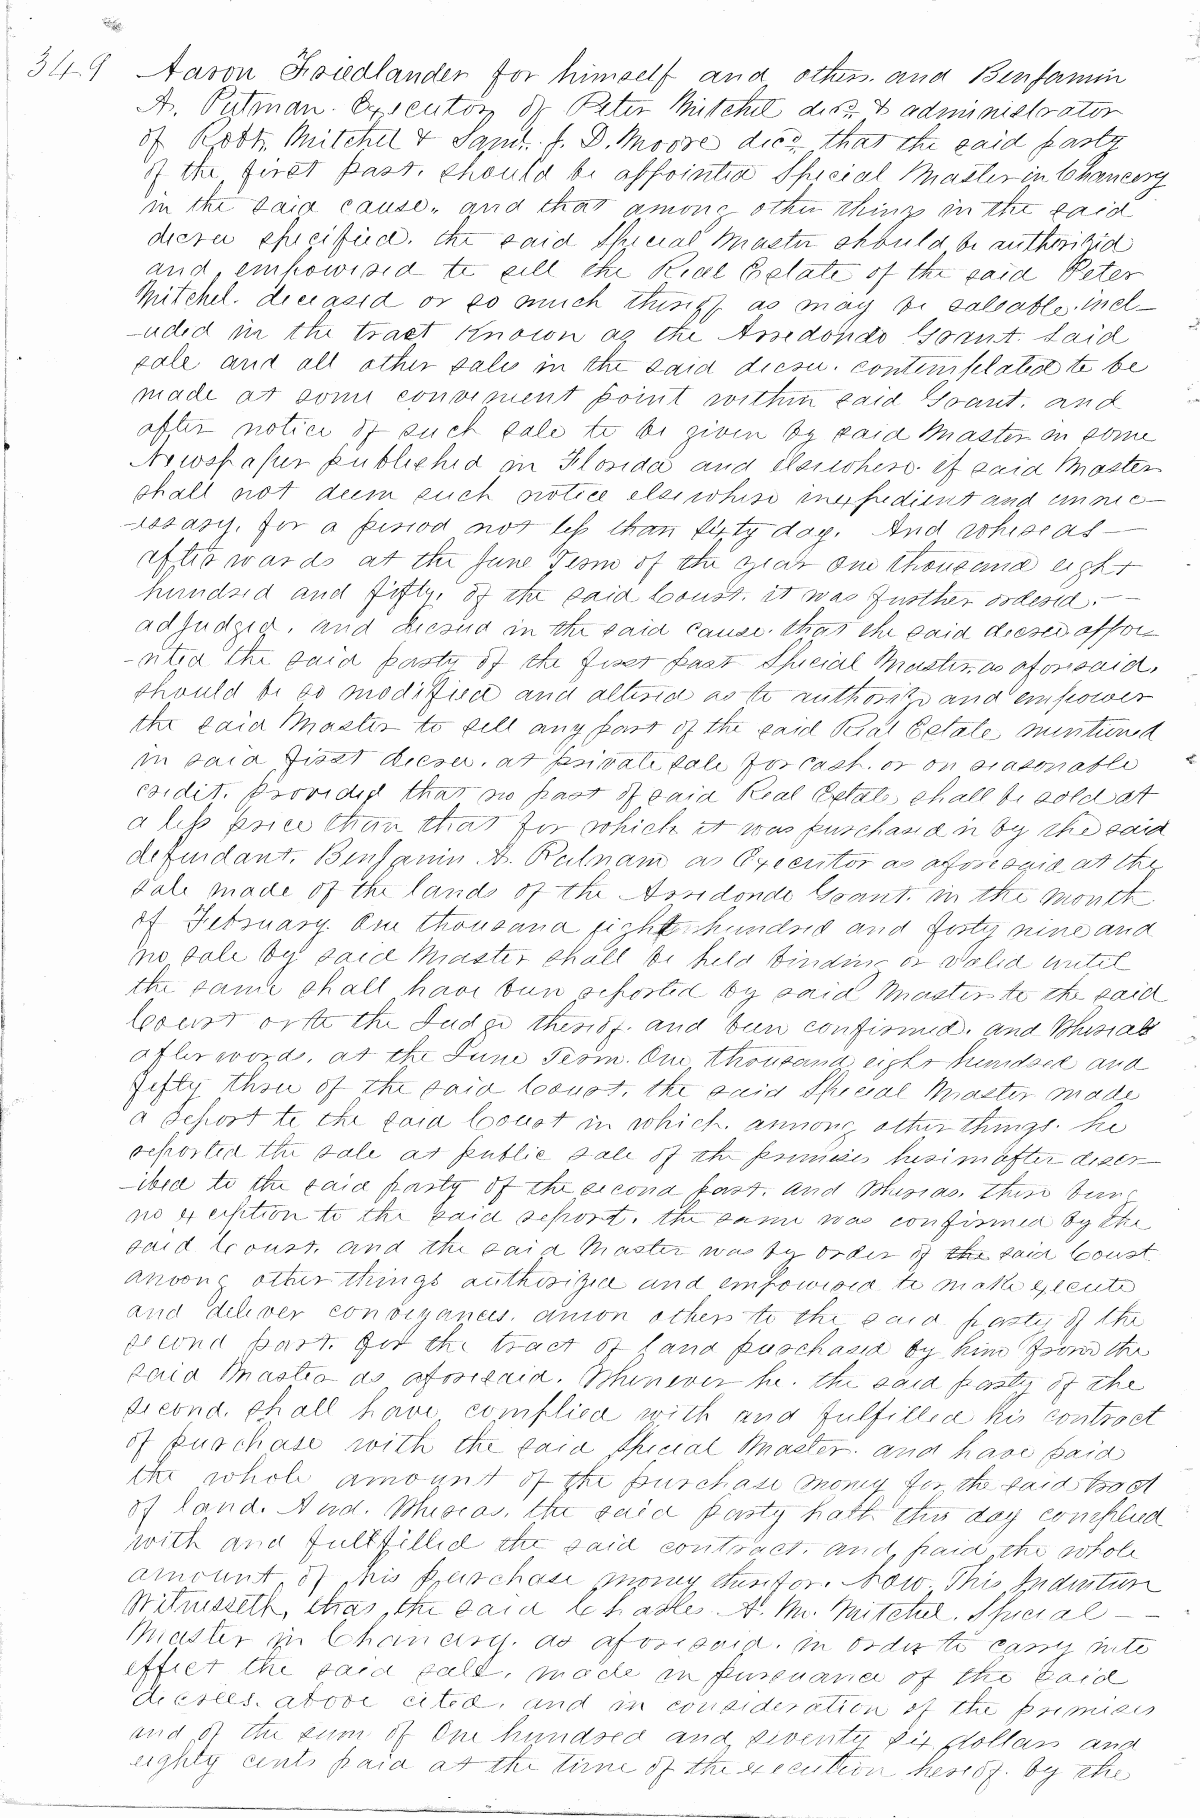 349 Aaron Friedlander for himself and others. and Benjamin
A. Putman. Executor of Peter Mitchel decd. & administrator
of Robt. Mitchel & Saml. J. D. Moore decd. that the said party
of the first part. should be appointed Special Master in Chancery
in the said cause. and that among other things in the said
decree specified. the said Special Master should be authorized
and empowered to sell the Real Estate of the said Peter
Mitchel. deceased or so much thereof as may be saleable. incl-
-uded in the tract Known as the Arredondo Grant. Said
sale and all other sales in the said decree. contemplated to be
made at some convenient point within said Grant. and
after notice of such sale to be given by said Master in some
Newspaper published in Florida and elsewhere. if said Master
shall not deem such notice elsewhere inexpedient and unnec-
-essary. for a period not less than Sixty day. And whereas -
afterwards at the June Term of the year One thousand eight
hundred and fifty. of the said Court. it was further ordered. -
adjudged. and decreed in the said cause. that the said decree appoi-
-nted the said party of the first part Special Master. as aforesaid.
should be so modified and altered as to authorize and empower
the said Master to sell any part of the said Real Estate mentioned
in said first decree. at private sale for cash. or on reasonable
credit. provided that no part of said Real Estate shall be sold at
a less price than that for which it was purchased in by the said
defendant. Benjamin A. Putnam as Executor as aforesaid at the
sale made of the lands of the Arredondo Grant. in the month
of February. One thousand eight hundred and forty nine and
no sale by said Master shall be held binding or valid until
the same shall have been reported by said Master to the said
Court or to the Judge thereof. and been confirmed. and Whereas
afterwords. at the June Term. One thousand eight hundred and
fifty three of the said Court. the said Special Master made
a report to the said Court in which. among other things. he
reported the sale at public sale of the premises hereinafter descr-
-ibed to the said party of the second part. and Whereas. there being
no exception to the said report. the same was confirmed by the
said Court. and the said Master was by order of the said Court
among other things authorized and empowered to make execute
and deliver conveyances. amon others to the said party of the
second part. for the tract of land purchased by him from the
said Master as aforesaid. Whenever he. the said party of the
second. shall have complied with and fulfilled his contract
of purchase with the said Special Master. and have paid
the whole amount of the purchase money for the said tract
of land. And. Whereas. the said party hath this day complied
with and fullfilled the said contract. and paid the whole
amount of his purchase money therefor. Now This Indenture
Witnesseth, that the said Charles A. M. Mitchel. Special - -
Master in Chancery. as aforesaid. in order to carry into
effect the said sale. made in pursuance of the said
decrees. above cited. and in consideration of the premises
and of the sum of One hundred and seventy six dollars and
eighty cents paid at the time of the execution hereof. by the